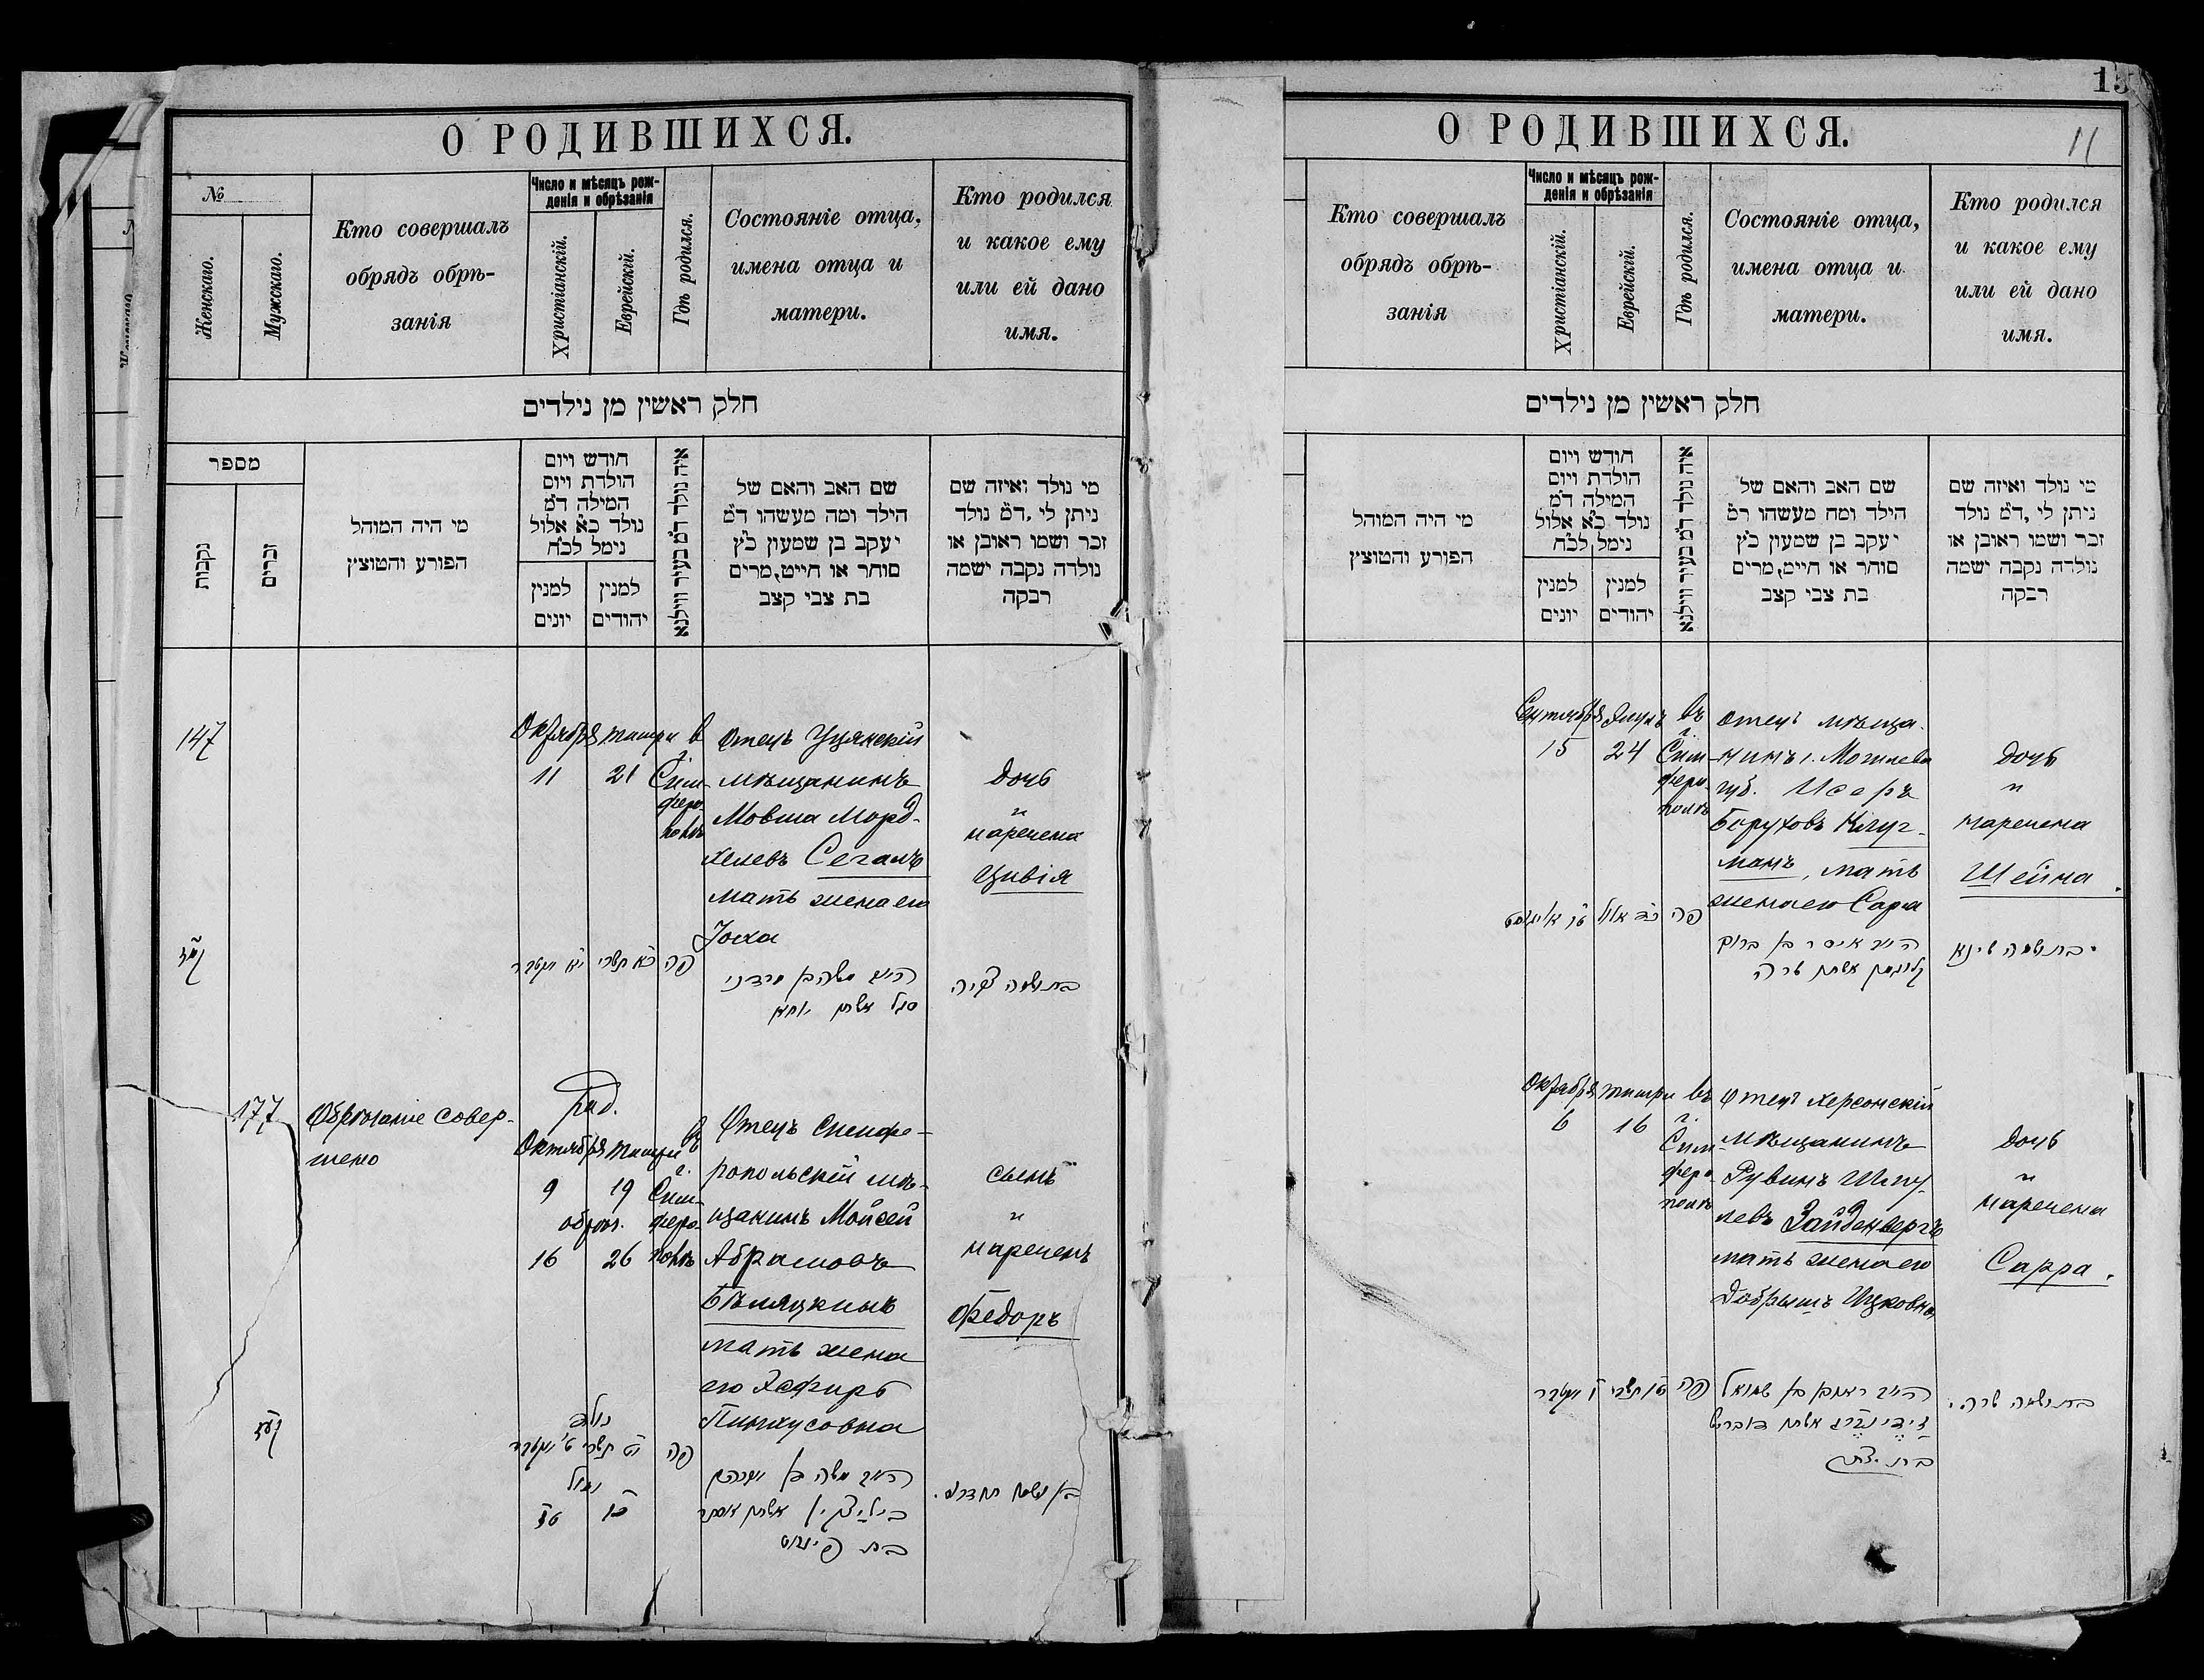 О РОДИВШИХСЯ.
№
Женскаго.
Мужскаго.
Кто совершалъ
обрядъ обрѣ-
занія
Число и мѣсяцъ рож-
денія и обрѣзанія
Христіанскій.
Еврейскій.
Годъ родился.
Состояніе отца,
имена отца и
матери.
Кто родился
и какое ему
или ей дано
имя.
חלק ראשין מן נילדים
מספר
נקבות
זכרים
מי היה המוהל
הפורע והטוצץ
חודש ויום
הולדת ויום
המילה ד״מ
נולד כ״א אלול
נימל לכ״ח
למנין
יונים
למנין
יהודים
איה נולד ד״מ בעיר ווילנא
שם האב והאם של
הילד ומה מעשהו ד״מ
יעקב בן שמעון כ״ץ
סוחר או חייט, מרים
בת צבי קצב
מי נולד ואיזה שם
ניתן לי, ד״מ נולד
זכר ושמו ראובן או
נולדה נקבה ישמה
רבקה
147
Октября
11
тишри
21
в
г.
Сим-
феро-
полѣ
Отецъ Уцянскій
мѣщанинъ
Мовша Морд-
хелевъ Сегалъ
мать жена его
Іоха
Дочь
"
наречена
Цивія
קמז
י״א
כ״א תשרי
פה
סגל אשתו יוחא
בת ושמה צביה
177
Обрѣзаніе совер-
шено
Род.
Октября
9
тишри
19
обрѣз.
16
26
въ
г.
Сим-
феро-
полѣ
Отецъ Симфе-
ропольскій мѣ-
щанинъ Мойсей
Абрамовъ
Бѣляцкинъ
мать жена
его Эсфирь
Пинхусовна
сынъ
"
нареченъ
Федоръ
קעז
נולד
י״ט תשרי
פה
נימול
כ״ו
ט״ז
אשתו אסתר
О РОДИВШИХСЯ.
15
11
Кто совершалъ
обрядъ обрѣ-
занія
Число и мѣсяцъ рож-
денія и обрѣзанія
Христіанскій.
Еврейскій.
Годъ родился.
Состояніе отца,
имена отца и
матери.
Кто родился
и какое ему
или ей дано
имя.
חלק ראשין מן נילדים
מי היה המוהל
הפורע והטוצץ
חודש ויום
הולדת ויום
המילה ד״מ
נולד כ״א אלול
נימל לכ״ח
למנין
יונים
למנין
יהודים
איה נולד ד״מ בעיר ווילנא
שם האב והאם של
הילד ומה מעשהו ד״מ
יעקב בן שמעון כ״ץ
סוחר או חייט, מרים
בת צבי קצב
מי נולד ואיזה שם
ניתן לי, ד״מ נולד
זכר ושמו ראובן או
נולדה נקבה ישמה
רבקה
Сентября
15
Элулъ
24
въ
г.
Сим-
феро-
полѣ
отецъ мѣща-
нинъ г. Могилева
губ. Исеръ
Боруховъ Клуг-
манъ, мать
жена его Сара
Дочь
"
наречена
Шейна.
כ״ד אלול
פה
איסר בן ברוך
קלוגמן אשתו שרה
בת ושמה שינא
Октября
6
тишри
16
въ
г.
Сим-
феро-
полѣ
Отецъ Херсонскій
мѣщанинъ
Рувинъ Шму-
левъ Зайденвергъ
мать жена его
Добрышъ Ицковна
Дочь
"
наречена
Сарра.
ט״ז תשרי
פה
ראובן בן שמואל
אשתו דובריש
בת ושמה שרה.